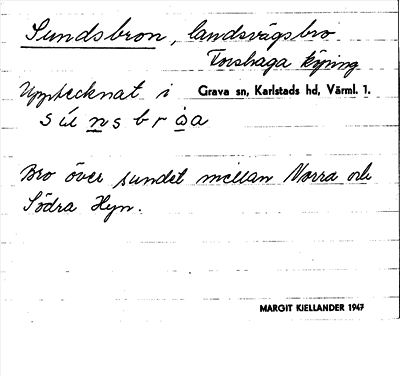 Sundsbron, landsvägsbro
Forshaga köping
Upptecknat i Grava sn, Karlstads hd, Värml. 1.
súnsbròa
Bro över sundet mellan Norra och
Södra Hyn.
MARGIT KJELLANDER 1947